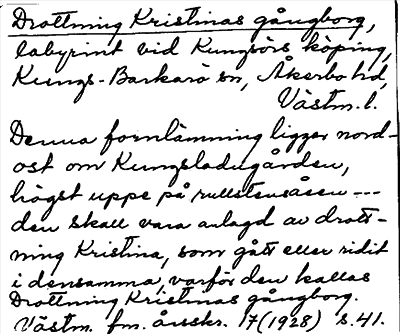 Drottning Kristinas gångborg,
labyrint vid Kungsörs köping,
Kungs-Barkarö sn, Åkerbo hd,
Västm. l.
Denna fornlämning ligger nord-
ost om Kungsladugården,
högst uppe på rullstensåsen ---
den skall vara anlagd av drott-
ning Kristina, som gått eller ridit
i densamma, varför den kallas
Drottning Kristinas gångborg.
Västm. fm. årsskr. 17 (1928) s. 41.